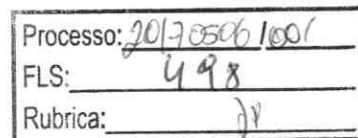 Processo: 20170506/001
FLS: 498
Rubrica: